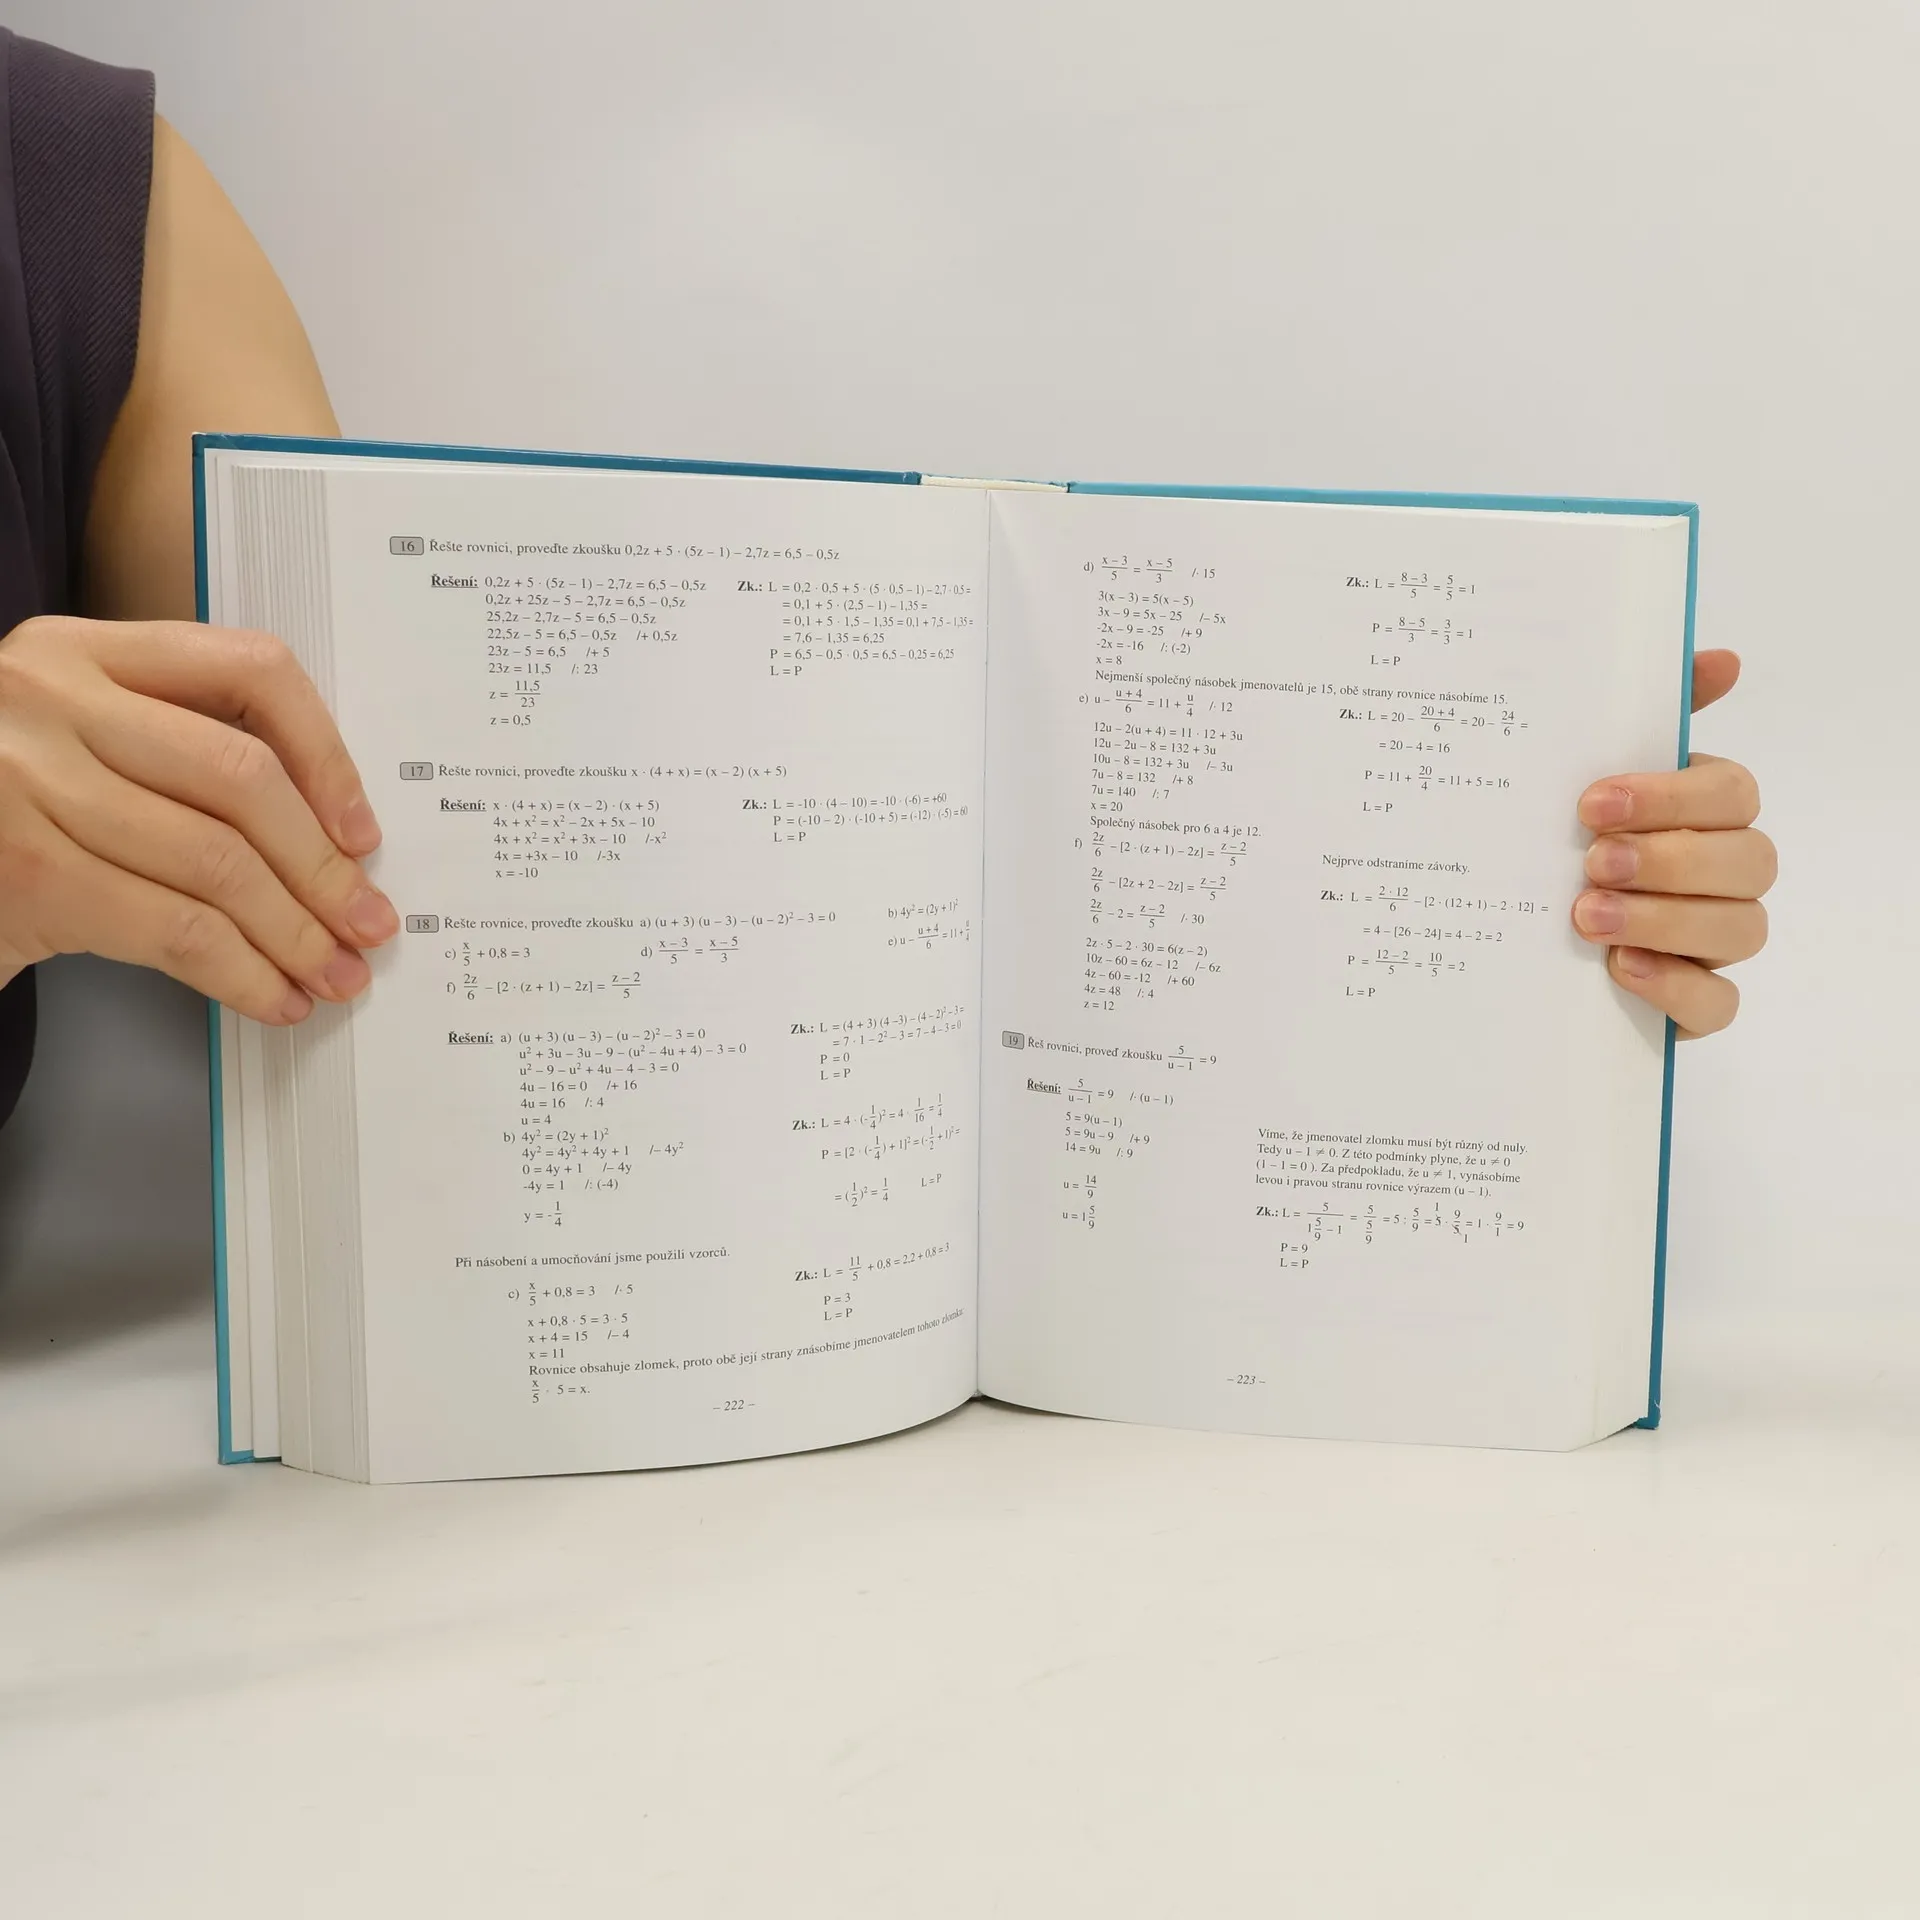 16 Řešte rovnici, proveďte zkoušku 0,2z + 5 · (5z – 1) – 2,7z = 6,5 – 0,5z
Řešení: 0,2z + 5 · (5z – 1) – 2,7z = 6,5 – 0,5z
0,2z + 25z – 5 – 2,7z = 6,5 – 0,5z
25,2z – 2,7z – 5 = 6,5 – 0,5z
22,5z – 5 = 6,5 – 0,5z /+ 0,5z
23z – 5 = 6,5 /+ 5
23z = 11,5 /: 23
z = 11,5/23
z = 0,5
Zk.: L = 0,2 · 0,5 + 5 · (5 · 0,5 – 1) – 2,7 · 0,5 =
= 0,1 + 5 · (2,5 – 1) – 1,35 =
= 0,1 + 5 · 1,5 – 1,35 = 0,1 + 7,5 – 1,35 =
= 7,6 – 1,35 = 6,25
P = 6,5 – 0,5 · 0,5 = 6,5 – 0,25 = 6,25
L = P
17 Řešte rovnici, proveďte zkoušku x · (4 + x) = (x – 2) (x + 5)
Řešení: x · (4 + x) = (x – 2) · (x + 5)
4x + x² = x² – 2x + 5x – 10
4x + x² = x² + 3x – 10 /-x²
4x = +3x – 10 /-3x
x = -10
Zk.: L = -10 · (4 – 10) = -10 · (-6) = +60
P = (-10 – 2) · (-10 + 5) = (-12) · (-5) = 60
L = P
18 Řešte rovnice, proveďte zkoušku a) (u + 3) (u – 3) – (u – 2)² – 3 = 0 b) 4y² = (2y + 1)²
c) x/5 + 0,8 = 3 d) x – 3/5 = x – 5/3 e) u – u + 4/6 = 11 + u/4
f) 2z/6 – [2 · (z + 1) – 2z] = z – 2/5
Řešení: a) (u + 3) (u – 3) – (u – 2)² – 3 = 0
u² + 3u – 3u – 9 – (u² – 4u + 4) – 3 = 0
u² – 9 – u² + 4u – 4 – 3 = 0
4u – 16 = 0 /+ 16
4u = 16 /: 4
u = 4
Zk.: L = (4 + 3) (4 –3) – (4 – 2)² – 3 =
= 7 · 1 – 2² – 3 = 7 – 4 – 3 = 0
P = 0
L = P
b) 4y² = (2y + 1)²
4y² = 4y² + 4y + 1 /– 4y²
0 = 4y + 1 /– 4y
-4y = 1 /: (-4)
y = -1/4
Zk.: L = 4 · (-1/4)² = 4 · 1/16 = 1/4
P = [2 · (-1/4) + 1]² = (-1/2 + 1)² =
= (1/2)² = 1/4 L = P
Při násobení a umocňování jsme použili vzorců.
c) x/5 + 0,8 = 3 /· 5
x + 0,8 · 5 = 3 · 5
x + 4 = 15 /– 4
x = 11
Zk.: L = 11/5 + 0,8 = 2,2 + 0,8 = 3
P = 3
L = P
Rovnice obsahuje zlomek, proto obě její strany znásobíme jmenovatelem tohoto zlomku:
x/5 · 5 = x.
– 222 –
d) x – 3/5 = x – 5/3 /· 15
3(x – 3) = 5(x – 5)
3x – 9 = 5x – 25 /– 5x
-2x – 9 = -25 /+ 9
-2x = -16 /: (-2)
x = 8
Zk.: L = 8 – 3/5 = 5/5 = 1
P = 8 – 5/3 = 3/3 = 1
L = P
Nejmenší společný násobek jmenovatelů je 15, obě strany rovnice násobíme 15.
e) u – u + 4/6 = 11 + u/4 /· 12
12u – 2(u + 4) = 11 · 12 + 3u
12u – 2u – 8 = 132 + 3u
10u – 8 = 132 + 3u /– 3u
7u – 8 = 132 /+ 8
7u = 140 /: 7
x = 20
Zk.: L = 20 – 20 + 4/6 = 20 – 24/6 =
= 20 – 4 = 16
P = 11 + 20/4 = 11 + 5 = 16
L = P
Společný násobek pro 6 a 4 je 12.
f) 2z/6 – [2 · (z + 1) – 2z] = z – 2/5
2z/6 – [2z + 2 – 2z] = z – 2/5
2z/6 – 2 = z – 2/5 /· 30
2z · 5 – 2 · 30 = 6(z – 2)
10z – 60 = 6z – 12 /– 6z
4z – 60 = -12 /+ 60
4z = 48 /: 4
z = 12
Nejprve odstraníme závorky.
Zk.: L = 2 · 12/6 – [2 · (12 + 1) – 2 · 12] =
= 4 – [26 – 24] = 4 – 2 = 2
P = 12 – 2/5 = 10/5 = 2
L = P
19 Řeš rovnici, proveď zkoušku 5/u – 1 = 9
Řešení: 5/u – 1 = 9 /· (u – 1)
5 = 9(u – 1)
5 = 9u – 9 /+ 9
14 = 9u /: 9
u = 14/9
u = 1 5/9
Víme, že jmenovatel zlomku musí být různý od nuly.
Tedy u – 1 ≠ 0. Z této podmínky plyne, že u ≠ 0
(1 – 1 = 0 ). Za předpokladu, že u ≠ 1, vynásobíme
levou i pravou stranu rovnice výrazem (u – 1).
Zk.: L = 5/1 5/9 – 1 = 5/5/9 = 5 : 5/9 = 5 · 9/5 = 1 · 9/1 = 9
P = 9
L = P
– 223 –